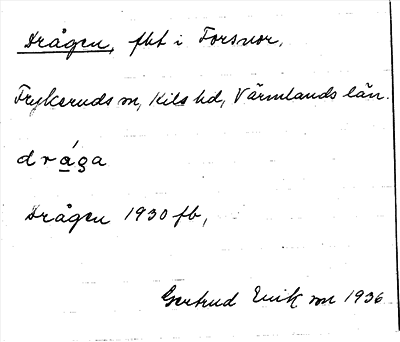 Drågen, fbt i Forsnor,
Frykeruds sn, Kils hd, Värmlands län.
dråga
Drågen 1930 fb,
Gertrud 1936